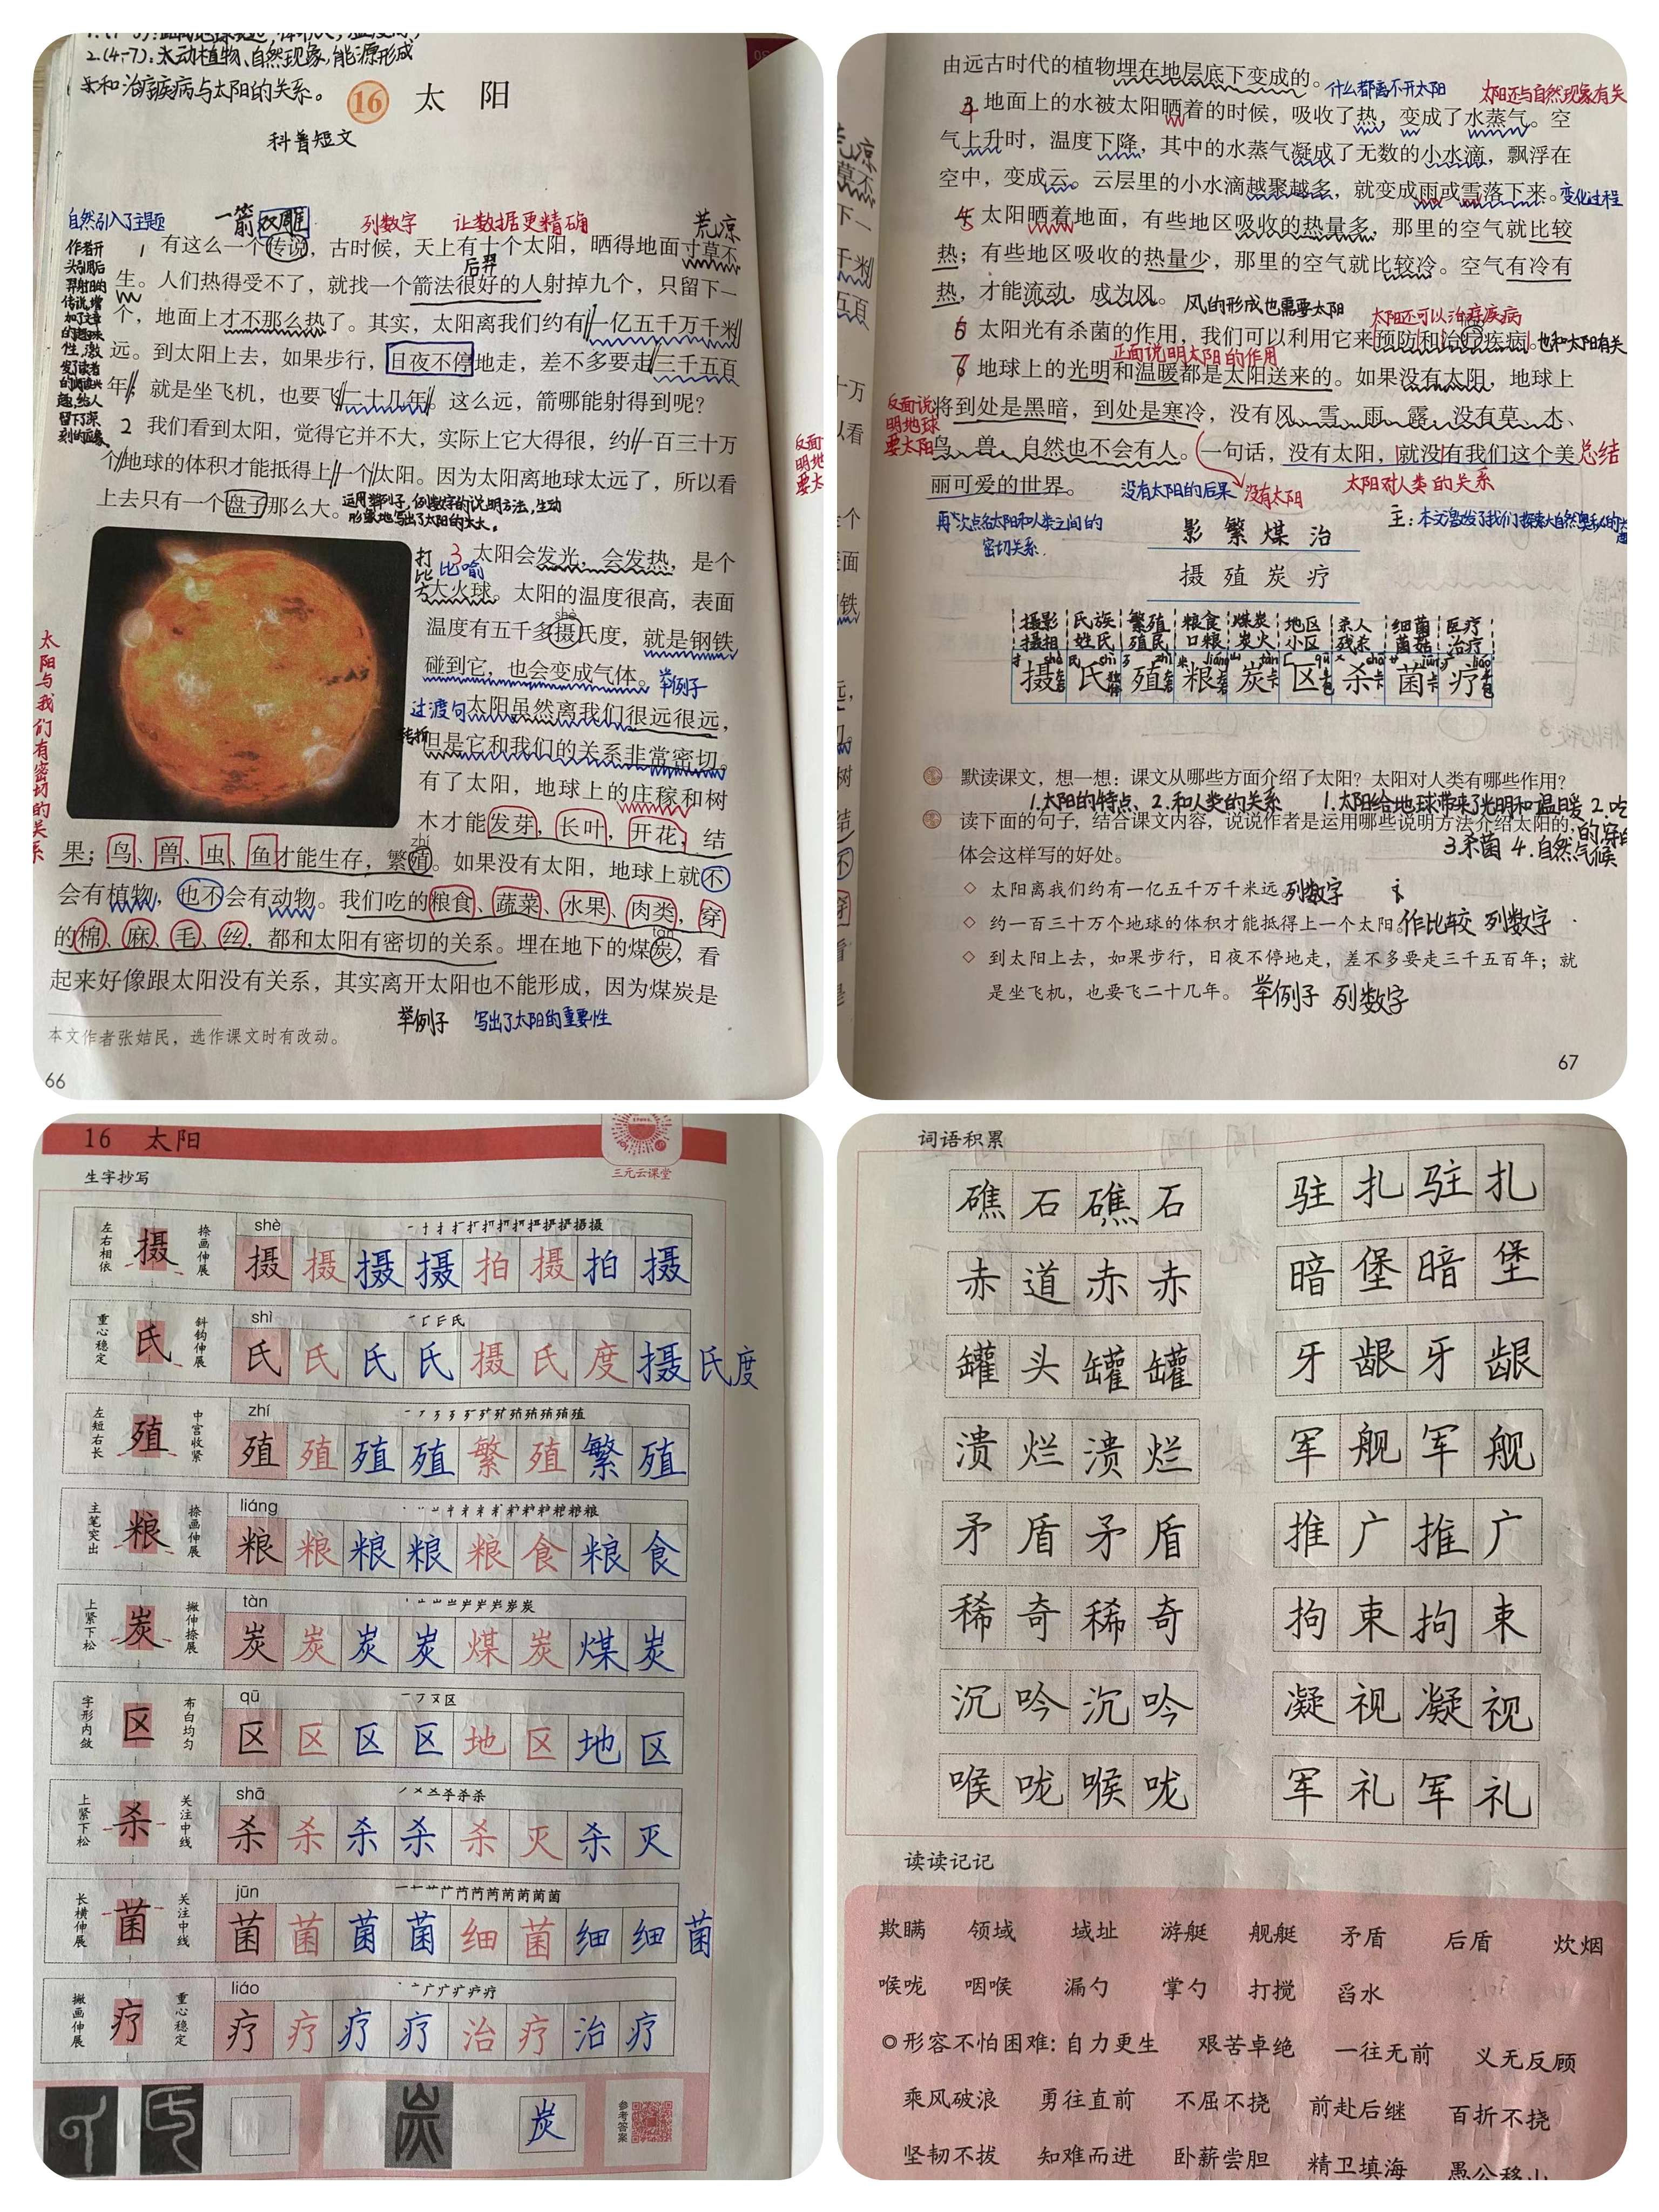 2.(4-7):太动植物、自然现象,能源形成
和治疗疾病与太阳的关系。
16 太阳
科普短文
自然引入了主题
一箭双雕
列数字 让数据更精确
荒凉
1 有这么一个传说,古时候,天上有十个太阳,晒得地面寸草不
后羿
生。人们热得受不了,就找一个箭法很好的人射掉九个,只留下一
个,地面上才不那么热了。其实,太阳离我们约有一亿五千万千米
远。到太阳上去,如果步行,日夜不停地走,差不多要走三千五百
年;就是坐飞机,也要飞二十几年。这么远,箭哪能射得到呢?
2 我们看到太阳,觉得它并不大,实际上它大得很,约一百三十万
个地球的体积才能抵得上一个太阳。因为太阳离地球太远了,所以看
上去只有一个盘子那么大。
运用举例子,例数字的说明方法,生动
形象地写出了太阳的大大。
打比方
比喻
3 太阳会发光,会发热,是个
大火球。太阳的温度很高,表面
shè
温度有五千多摄氏度,就是钢铁
碰到它,也会变成气体。
举例子
过渡句
太阳虽然离我们很远很远,
转折
但是它和我们的关系非常密切。
有了太阳,地球上的庄稼和树
木才能发芽,长叶,开花,结
太阳与我们有密切的关系
zhí
果;鸟、兽、虫、鱼才能生存,繁殖。如果没有太阳,地球上就不
会有植物,也不会有动物。我们吃的粮食、蔬菜、水果、肉类,穿
的棉、麻、毛、丝,都和太阳有密切的关系。埋在地下的煤炭,看
tàn
起来好像跟太阳没有关系,其实离开太阳也不能形成,因为煤炭是
举例子 写出了太阳的重要性
本文作者张姞民,选作课文时有改动。
66
由远古时代的植物埋在地层底下变成的。
什么都离不开太阳
太阳还与自然现象有关
地面上的水被太阳晒着的时候,吸收了热,变成了水蒸气。空
气上升时,温度下降,其中的水蒸气凝成了无数的小水滴,飘浮在
空中,变成云。云层里的小水滴越聚越多,就变成雨或雪落下来。
变化过程
太阳晒着地面,有些地区吸收的热量多,那里的空气就比较
热;有些地区吸收的热量少,那里的空气就比较冷。空气有冷有
热,才能流动,成为风。
风的形成也需要太阳
太阳还可以治疗疾病
太阳光有杀菌的作用,我们可以利用它来预防和治疗疾病。
也和太阳有关
正面说明太阳的作用
地球上的光明和温暖都是太阳送来的。如果没有太阳,地球上
反面说明地球要太阳
将到处是黑暗,到处是寒冷,没有风、雪、雨、露,没有草、木、
鸟、兽,自然也不会有人。一句话,没有太阳,就没有我们这个美
总结
丽可爱的世界。
没有太阳的后果
没有太阳
太阳对人类的关系
再次点名太阳和人类之间的
密切关系.
影繁煤治
摄殖炭疗
摄影 氏族 繁殖 粮食 煤炭 地区 杀人 细菌 医疗
摄相 姓氏 殖民 口粮 炭火 小区 残杀 菌菇 治疗
摄 氏 殖 粮 炭 区 杀 菌 疗
默读课文,想一想:课文从哪些方面介绍了太阳?太阳对人类有哪些作用?
1.太阳的特点、2.和人类的关系 1.太阳给地球带来了光明和温暖 2.吃
的穿的
读下面的句子,结合课文内容,说说作者是运用哪些说明方法介绍太阳的,
体会这样写的好处。
3.杀菌 4.自然气候
◇ 太阳离我们约有一亿五千万千米远。
列数字
◇ 约一百三十万个地球的体积才能抵得上一个太阳。
作比较 列数字
◇ 到太阳上去,如果步行,日夜不停地走,差不多要走三千五百年;就
是坐飞机,也要飞二十几年。
举例子 列数字
67
16 太阳
三元云课堂
生字抄写
左右相依 摄 捺画伸展
shè
摄摄摄摄拍摄拍摄
重心稳定 氏 斜钩伸展
shì
氏氏氏氏摄氏度摄氏度
左短右长 殖 中宫收紧
zhí
殖殖殖殖繁殖繁殖
主笔突出 粮 捺画伸展
liáng
粮粮粮粮粮食粮食
上紧下松 炭 撇伸捺展
tàn
炭炭炭炭煤炭煤炭
字形内敛 区 布白均匀
qū
区区区区地区地区
上紧下松 杀 关注中线
shā
杀杀杀杀杀灭杀灭
长横伸展 菌 关注中线
jūn
菌菌菌菌细菌细细菌
撇画伸展 疗 重心稳定
liáo
疗疗疗疗治疗治疗
炭
参考答案
词语积累
礁石礁石 驻扎驻扎
赤道赤赤 暗堡暗堡
罐头罐罐 牙龈牙龈
溃烂溃烂 军舰军舰
矛盾矛盾 推广推广
稀奇稀奇 拘束拘束
沉吟沉吟 凝视凝视
喉咙喉咙 军礼军礼
读读记记
欺瞒 领域 域址 游艇 舰艇 矛盾 后盾 炊烟
喉咙 咽喉 漏勺 掌勺 打搅 舀水
◎形容不怕困难:自力更生 艰苦卓绝 一往无前 义无反顾
乘风破浪 勇往直前 不屈不挠 前赴后继 百折不挠
坚韧不拔 知难而进 卧薪尝胆 精卫填海 愚公移山